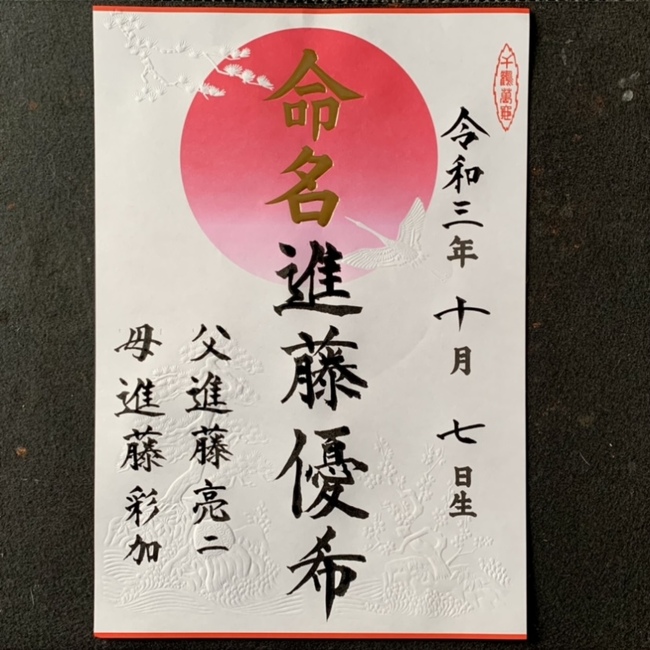 令和三年 十月 七日生
命名 進藤優希
父 進藤亮二
母 進藤彩加